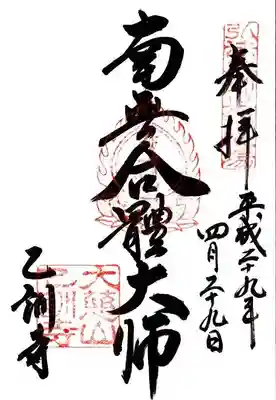 奉拝
平成二十九年
四月二十九日
南無合體大師
大慈山
乙訓寺
乙訓寺